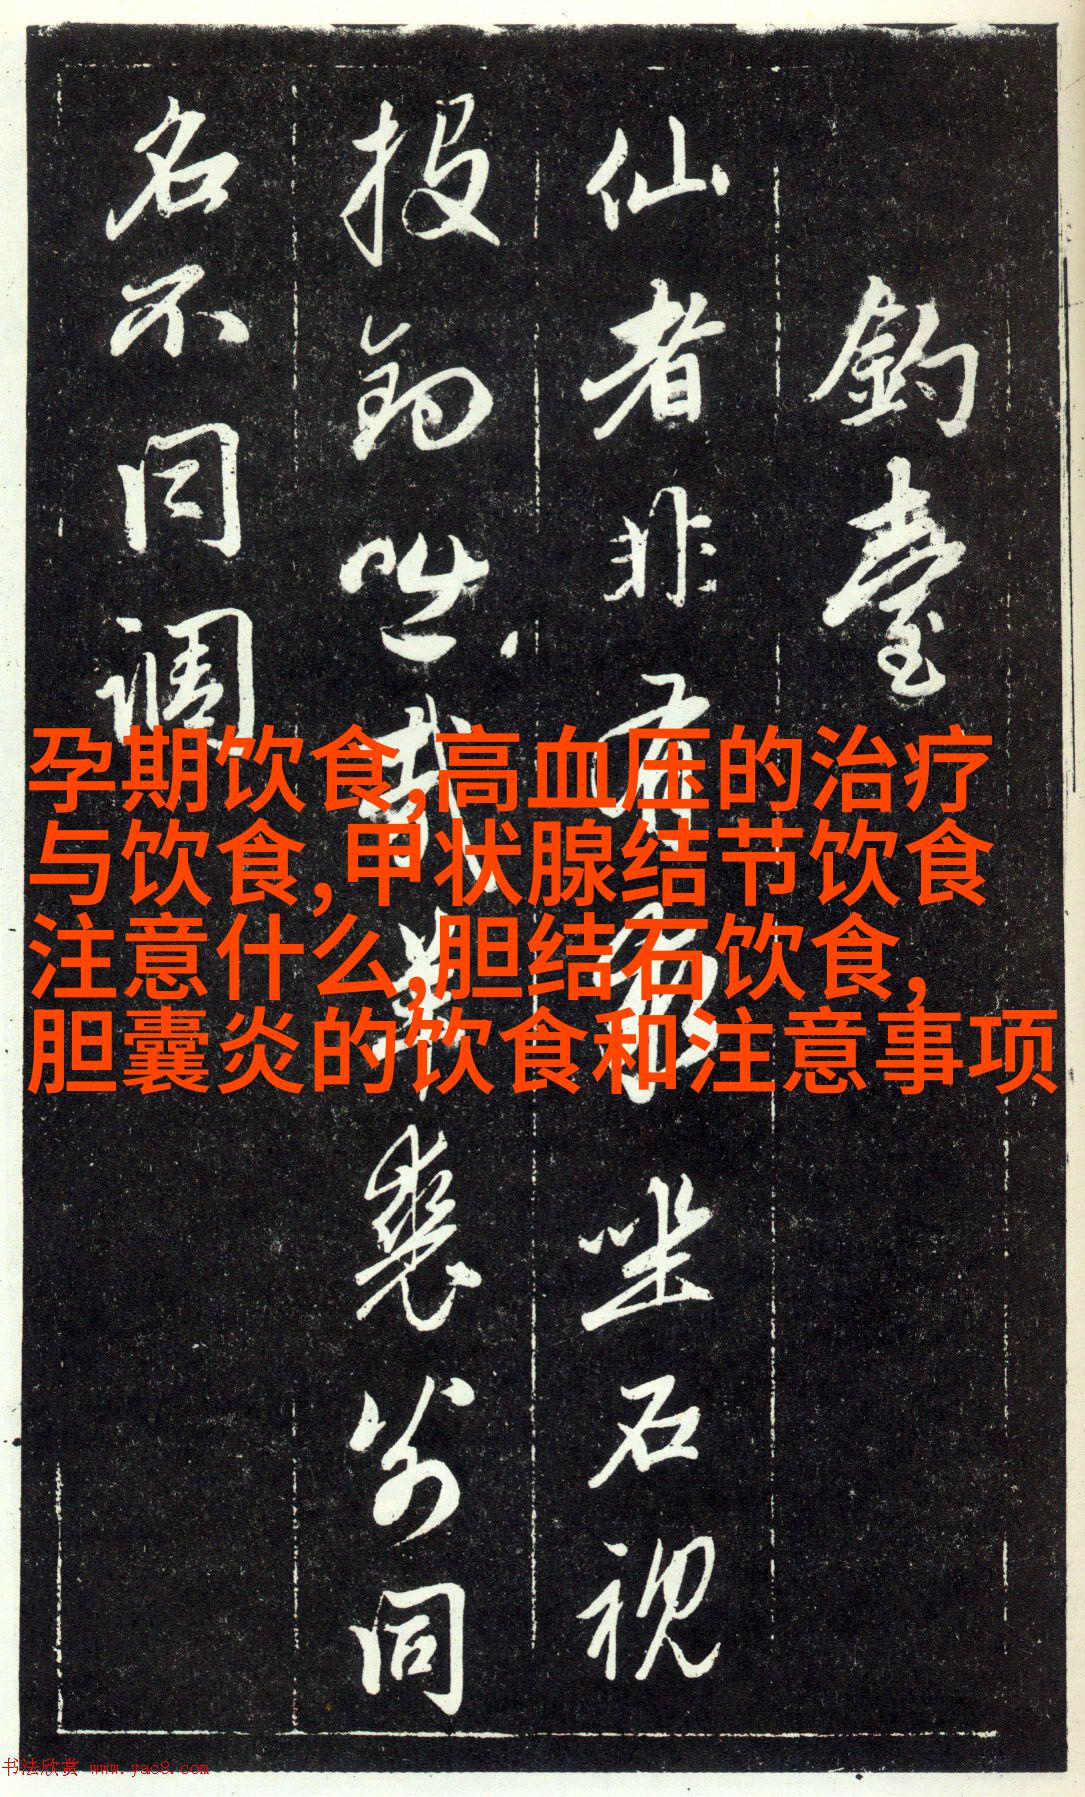 釣臺
仙者非有坐石視
投釣咄哉羊裘同
名不同調
孕期饮食,高血压的治疗
与饮食,甲状腺结节饮食
注意什么,胆结石饮食,
胆囊炎的饮食和注意事项
书法欣赏 www.yac8.com